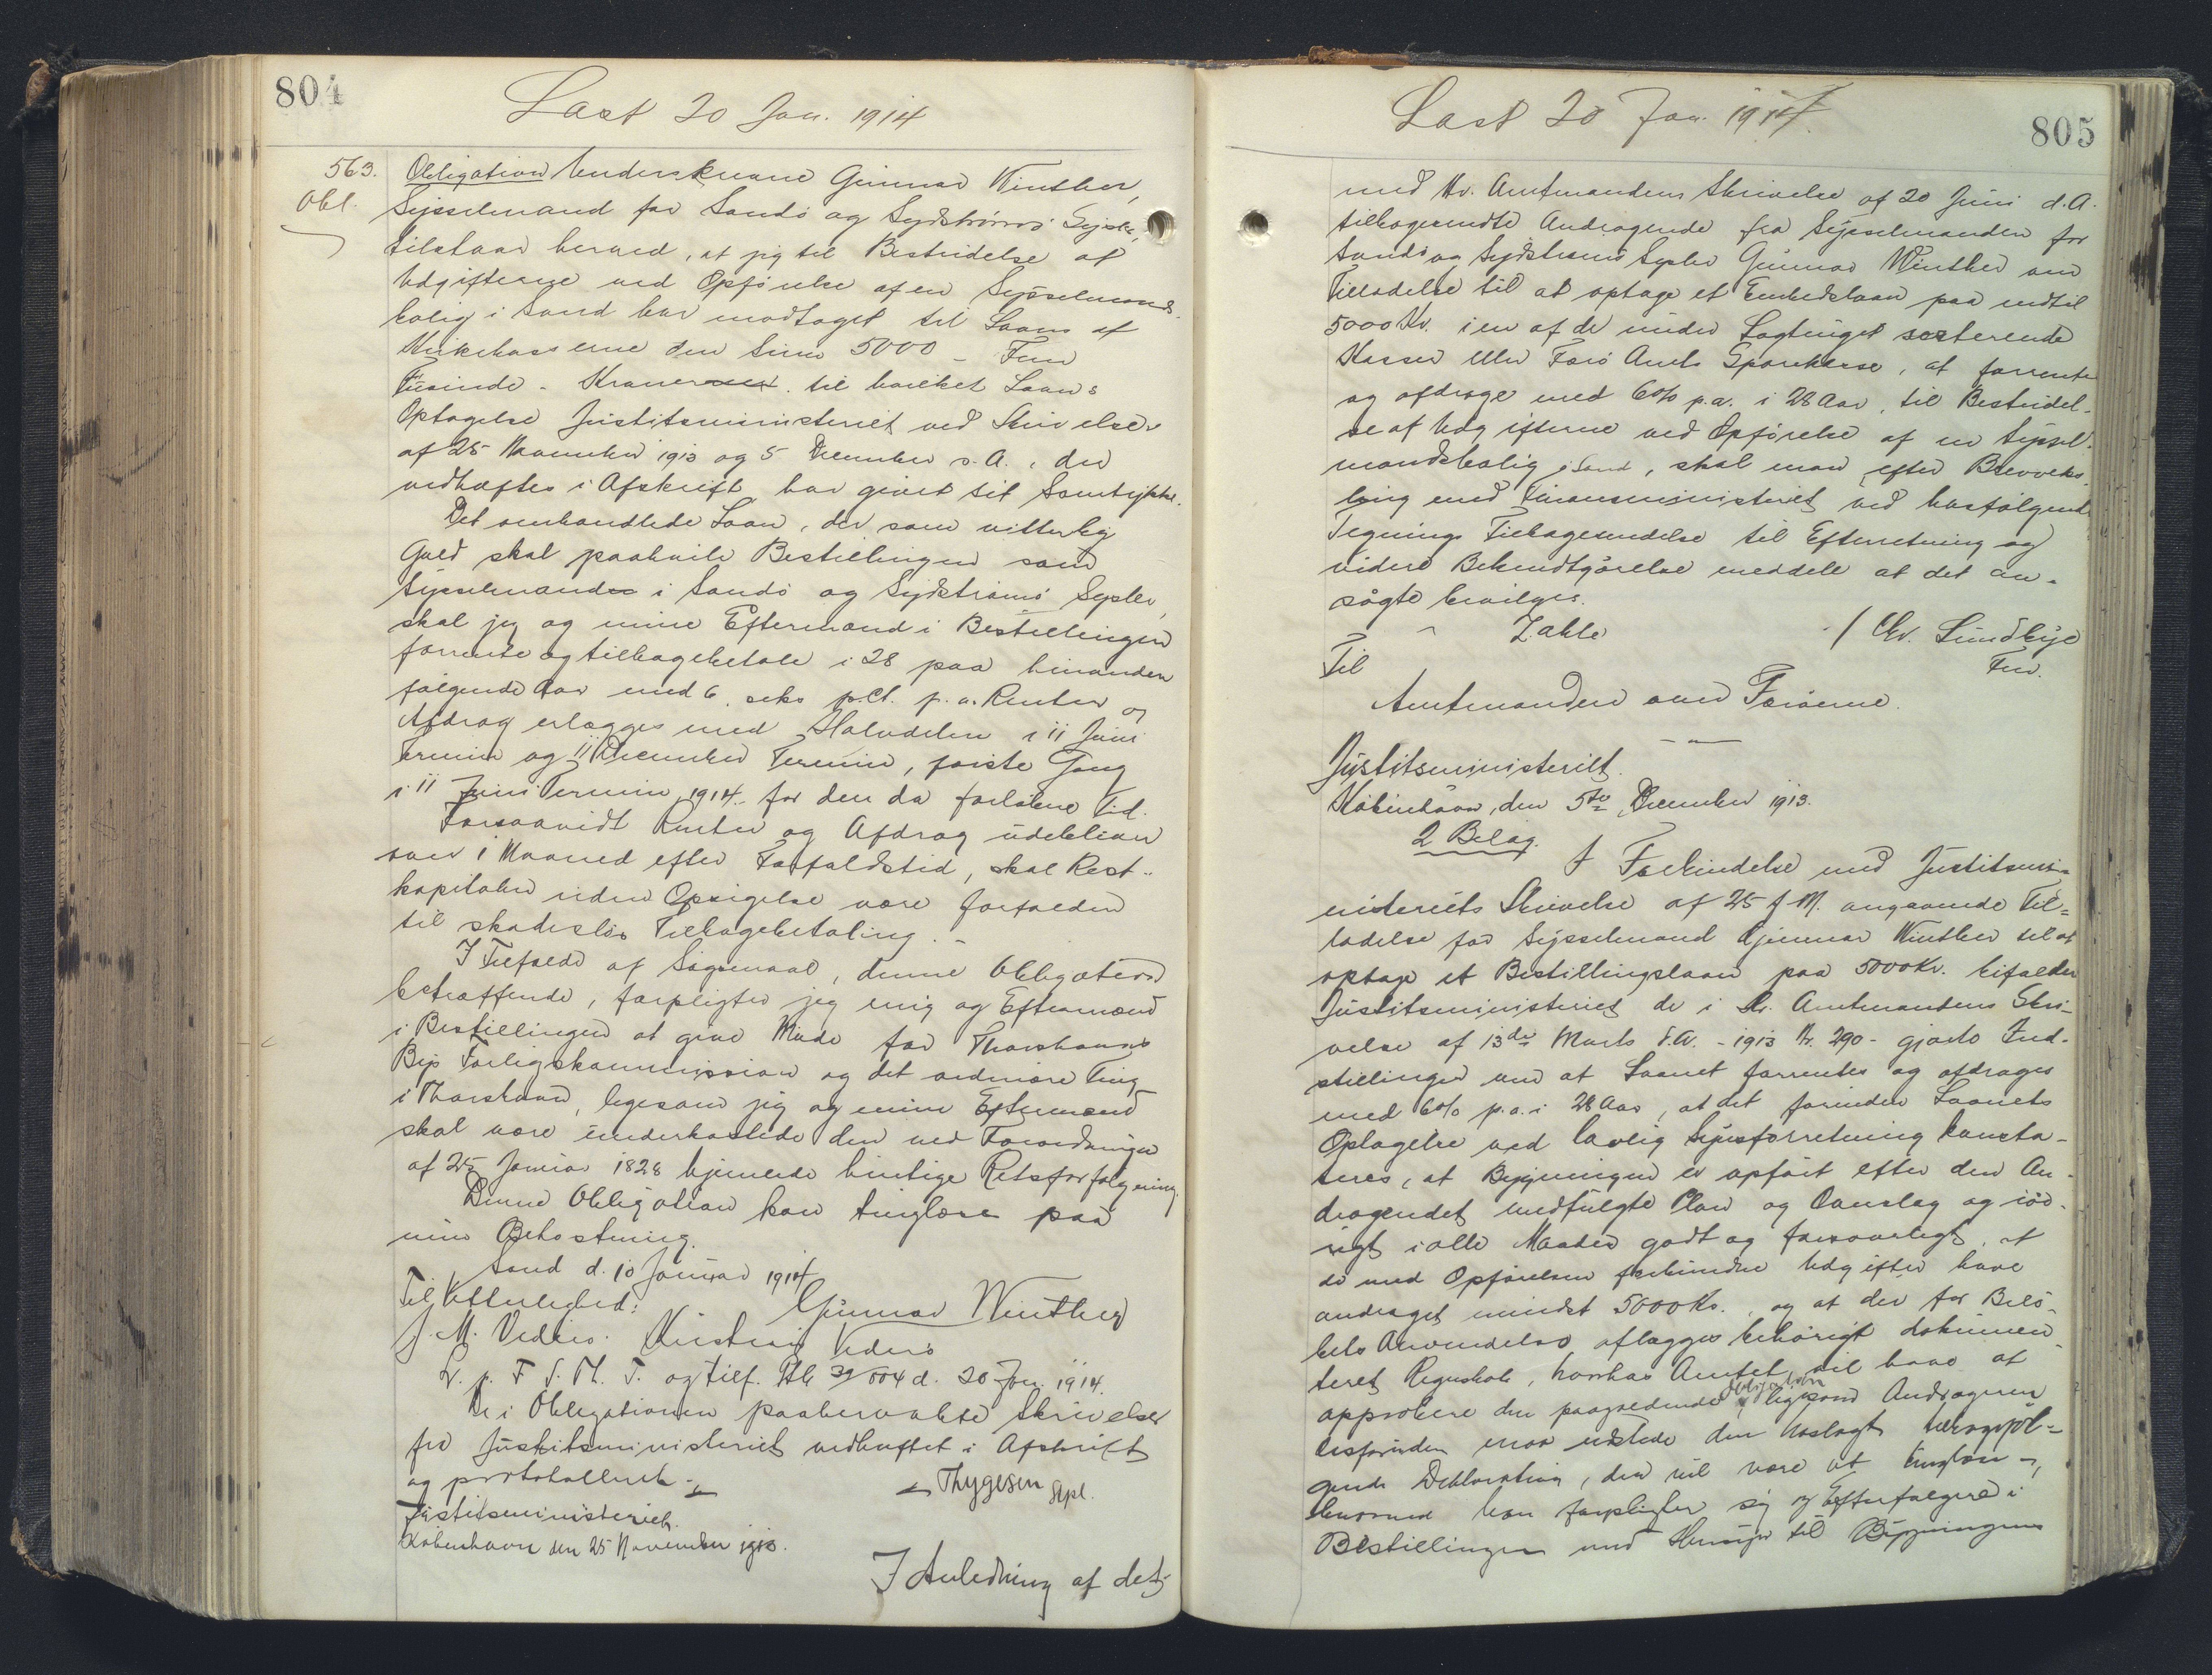 804
Læst 20 Jan. 1914
563.
Obl.
Obligation Underskrevne Gunnar Winther,
Sysselmand for Sandø og Sydstrømø Sysler,
tilstaar herved, at jeg til Bestridelse af
Udgifterne ved Opførelse af en Sysselmands-
bolig i Sand har modtaget til Laans af
Kirkekasserne den Sum 5000 - Fem
Tusinde - Kroner til hvilket Laans
Optagelse Justitsministeriet ved Skrivelser
af 25 November 1913 og 5 December s. A., der
vedhæftes i Afskrift, har givet sit Samtykke.
Det omhandlede Laan, der som vitterlig
Gæld skal paahvile Bestillingen som
Sysselmand i Sandø og Sydstrømø Sysler,
skal jeg og mine Eftermænd i Bestillingen
forrente og tilbagebetale i 28 paa hinanden
følgende Aar med 6, seks pCt. p. a. Renter og
Afdrag erlægges med Halvdelen i 11 Juni
Termin og 11 December Termin, første Gang
i 11 Juni Termin 1914 for den da forløbne Tid.
Forsaavidt Renter og Afdrag udebliver
over 1 Maaned efter Forfaldstid, skal Rest-
kapitalen uden Opsigelse være forfalden
til skadesløs Tilbagebetaling. -
I Tilfælde af Søgsmaal, denne Obligation
betræffende, forpligter jeg mig og Eftermænd
i Bestillingen at give Møde for Thorshavns
Bys Forligskommission og det ordinære Ting
i Thorshavn, ligesom jeg og mine Eftermænd
skal være underkastede den ved Forordningen
af 25 Januar 1828 hjemlede hurtige Retsforfølgning.
Denne Obligation kan tinglæses paa
min Bekostning.
Sand d. 10 Januar 1914
Til Vitterlighed:
Gunnar Winther
J. M. Viderø. Kristian Viderø
L. p. F. S. Th. T. og tilf. Ptk 39/804 d. 20 Jan. 1914.
De i Obligationen paaberaabte Skrivelser
fra Justitsministeriet vedhæftet i Afskrift
og protokolleret -
Thygesen
Spl.
Justitsministeriet.
København den 25 November 1913.
I Anledning af det
Læst 20 Jan. 1914
805
med Hr. Amtmandens Skrivelse af 20 Juni d. A.
tilbagesendte Andragende fra Sysselmanden for
Sandø og Sydstrømø Sysler Gunnar Winther om
Tilladelse til at optage et Embedslaan paa indtil
5000 Kr. i en af de under Lagtinget sorterende
Kasser eller Færø Amts Sparekasse, at forrente
og afdrage med 6% p.a. i 28 Aar, til Bestridel-
se af Udgifterne ved Opførelse af en Syssel-
mandsbolig i Sand, skal man efter Brevveks-
ling med Finansministeriet ved hosfølgende
Tegnings Tilbagesendelse til Efterretning og
videre Bekendtgørelse meddele at det an-
søgte bevilges.
Zahle
/ Chr. Lundbye
Fm.
Til
Amtmanden over Færøerne.
Justitsministeriet.
København, den 5te December 1913.
2 Bilag.
I Forbindelse med Justitsmi-
nisteriets Skrivelse af 25 f. M. angaaende Til-
ladelse for Sysselmand Gunnar Winther til at
optage et Bestillingslaan paa 5000 Kr. bifalder
Justitsministeriet de i Hr. Amtmandens Skri-
velse af 13de Marts d. A. - 1913 Nr. 290 - gjorte Ind-
stillinger om at Laanet forrentes og afdrages
med 6% p.a. i 28 Aar, at det forinden Laanets
Optagelse ved lovlig Synsforretning konsta-
teres, at Bygningen er opført efter den An-
dragendet medfulgte Plan og Overslag og iøv-
rigt i alle Maader godt og forsvarligt, at
de med Opførelsen forbundne Udgifter have
andraget mindst 5000 Kr., og at der for Belø-
bets Anvendelse aflægges behørigt dokumen-
teret Regnskab, hvorhos Amtet vil have at
approbere den paagældende Obligation ligesom Andrageren
desforuden maa udstede den hoslagt
Deklaration, der vil være at tinglæse -,
hvorved han forpligter sig og Efterfølgere i
Bestillingen med Hensyn til Bygningens